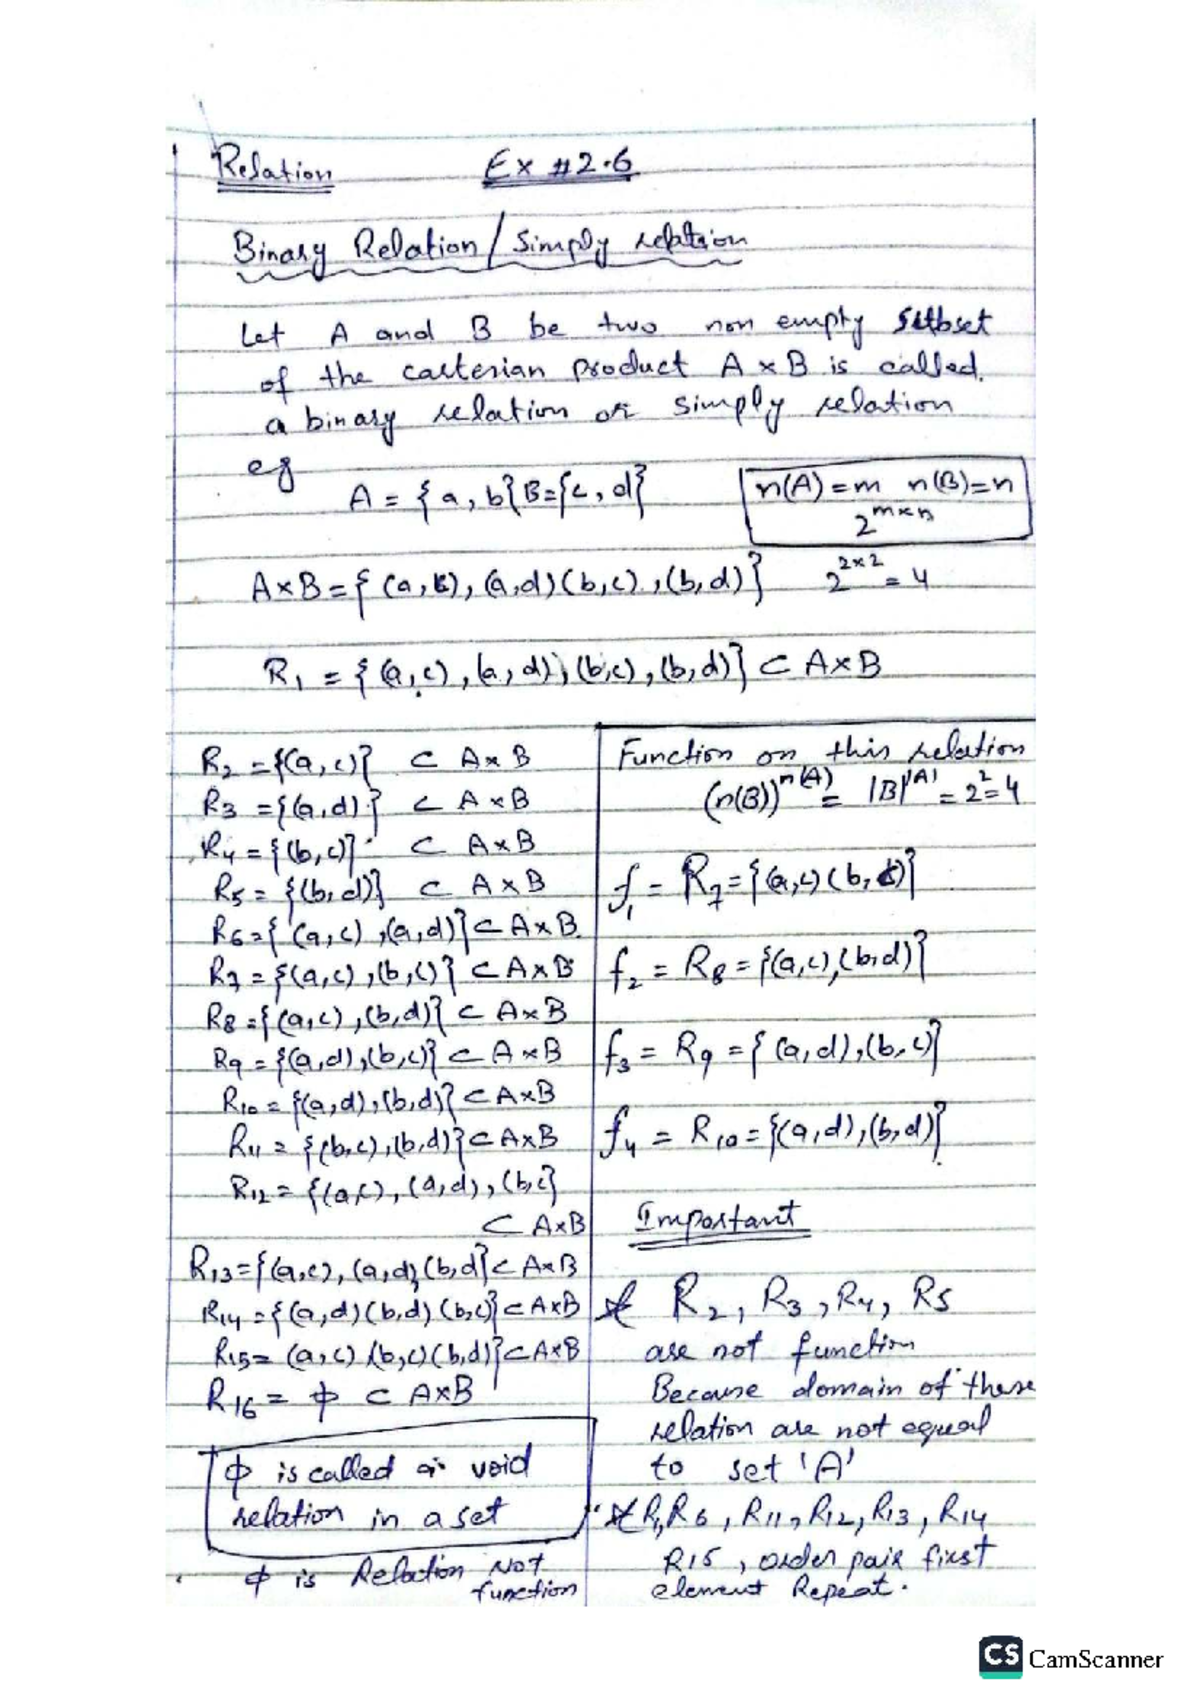 Relation Ex #2.6
Binary Relation / Simply relation
Let A and B be two non empty subset
of the carterian product A × B is called.
a binary relation or simply relation
eg
A = {a, b} B={c, d}
n(A) = m n(B)=n
2^{m×n}
A×B = { (a, c), (a,d) (b,c), (b,d)} 2^{2×2} = 4
R₁ = {(a,c), (a, d), (b,c), (b,d)} ⊂ A×B
R₂ = {(a, c)} ⊂ A×B
R₃ = {(a,d)} ⊂ A×B
R₄ = {(b,c)} ⊂ A×B
R₅ = {(b, d)} ⊂ A×B
R₆ = { (a, c), (a,d)} ⊂ A×B.
R₇ = {(a,c), (b,c)} ⊂ A×B
R₈ = {(a,c), (b,d)} ⊂ A×B
R₉ = {(a,d), (b,c)} ⊂ A×B
R₁₀ = {(a,d), (b,d)} ⊂ A×B
R₁₁ = {(b,c), (b,d)} ⊂ A×B
R₁₂ = {(a,c), (a,d), (b,c}
⊂ A×B
R₁₃ = {(a,c), (a,d), (b,d} ⊂ A×B
R₁₄ = {(a,d) (b,d) (b,c)} ⊂ A×B
R₁₅ = (a,c) (b,c) (b,d)} ⊂ A×B
R₁₆ = φ ⊂ A×B
φ is called a void
relation in a set
φ is Relation Not
function
Function on this relation
(n(B))^{n(A)} = |B|^{|A|} = 2² = 4
f₁ = R₇ = {(a,c) (b, c)}
f₂ = R₈ = {(a,c), (b,d)}
f₃ = R₉ = { (a,d), (b,c)}
f₄ = R₁₀ = {(a,d), (b,d)}
Important
* R₂, R₃, R₄, R₅
are not function
Because domain of these
relation are not equal
to set 'A'
* R₁, R₆, R₁₁, R₁₂, R₁₃, R₁₄
R₁₅, order pair first
element Repeat.
CS CamScanner